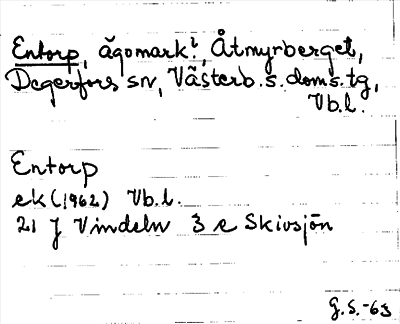 Entorp, ägomark?, Åtmyrberget,
Degerfors sn, Västerb. s. doms. tg,
Vb.l.
Entorp
ek (1962) Vb.l.
21 J Vindeln 3 e Skivsjön
G.S.-63